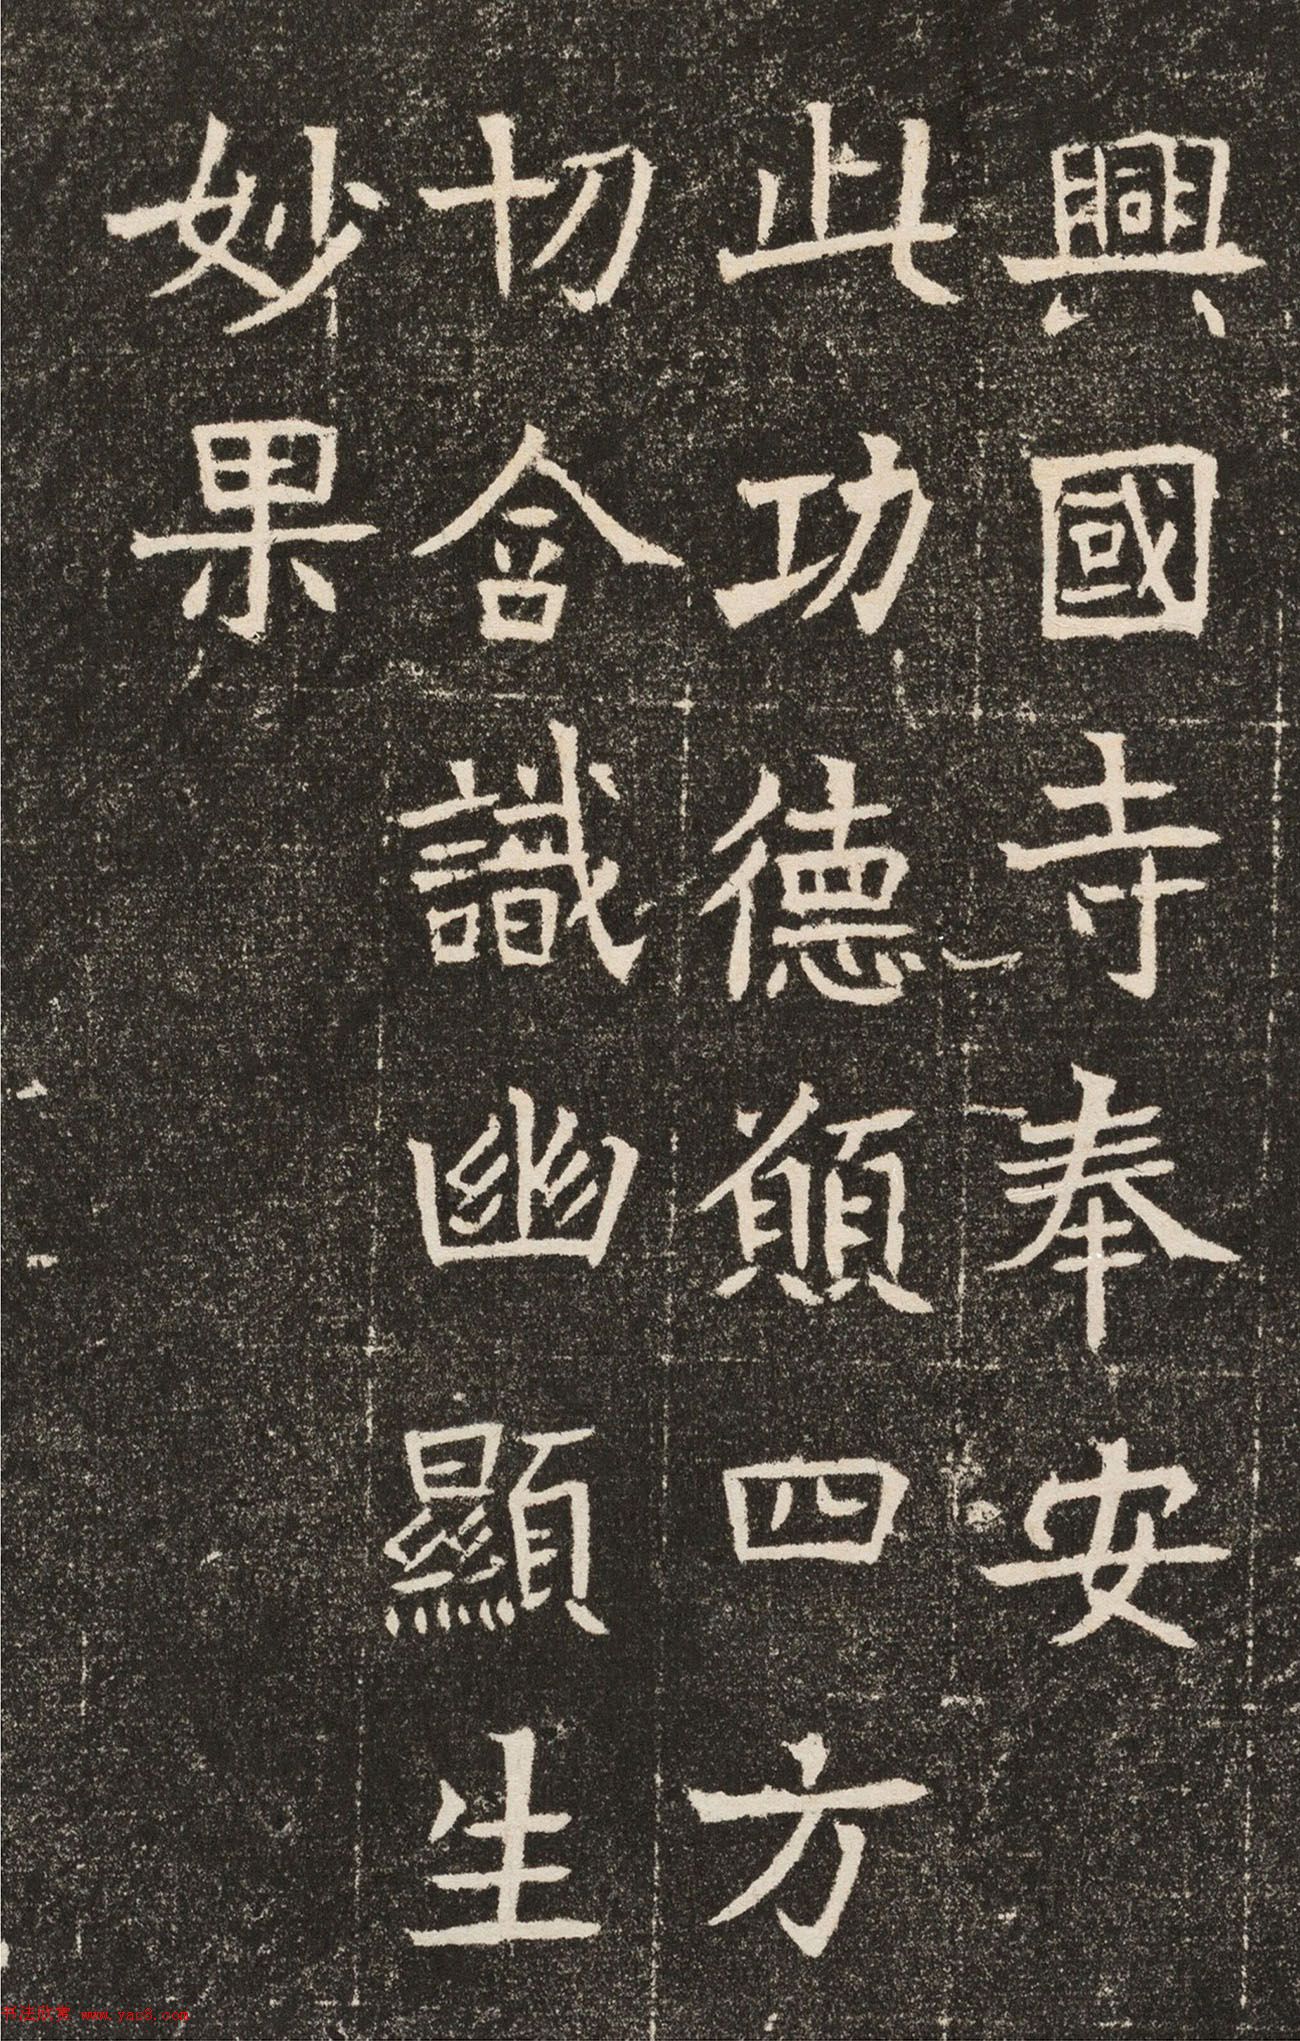 興國寺奉安
此功德願四方
切含識幽顯生
妙果
书法欣赏 www.yac8.com